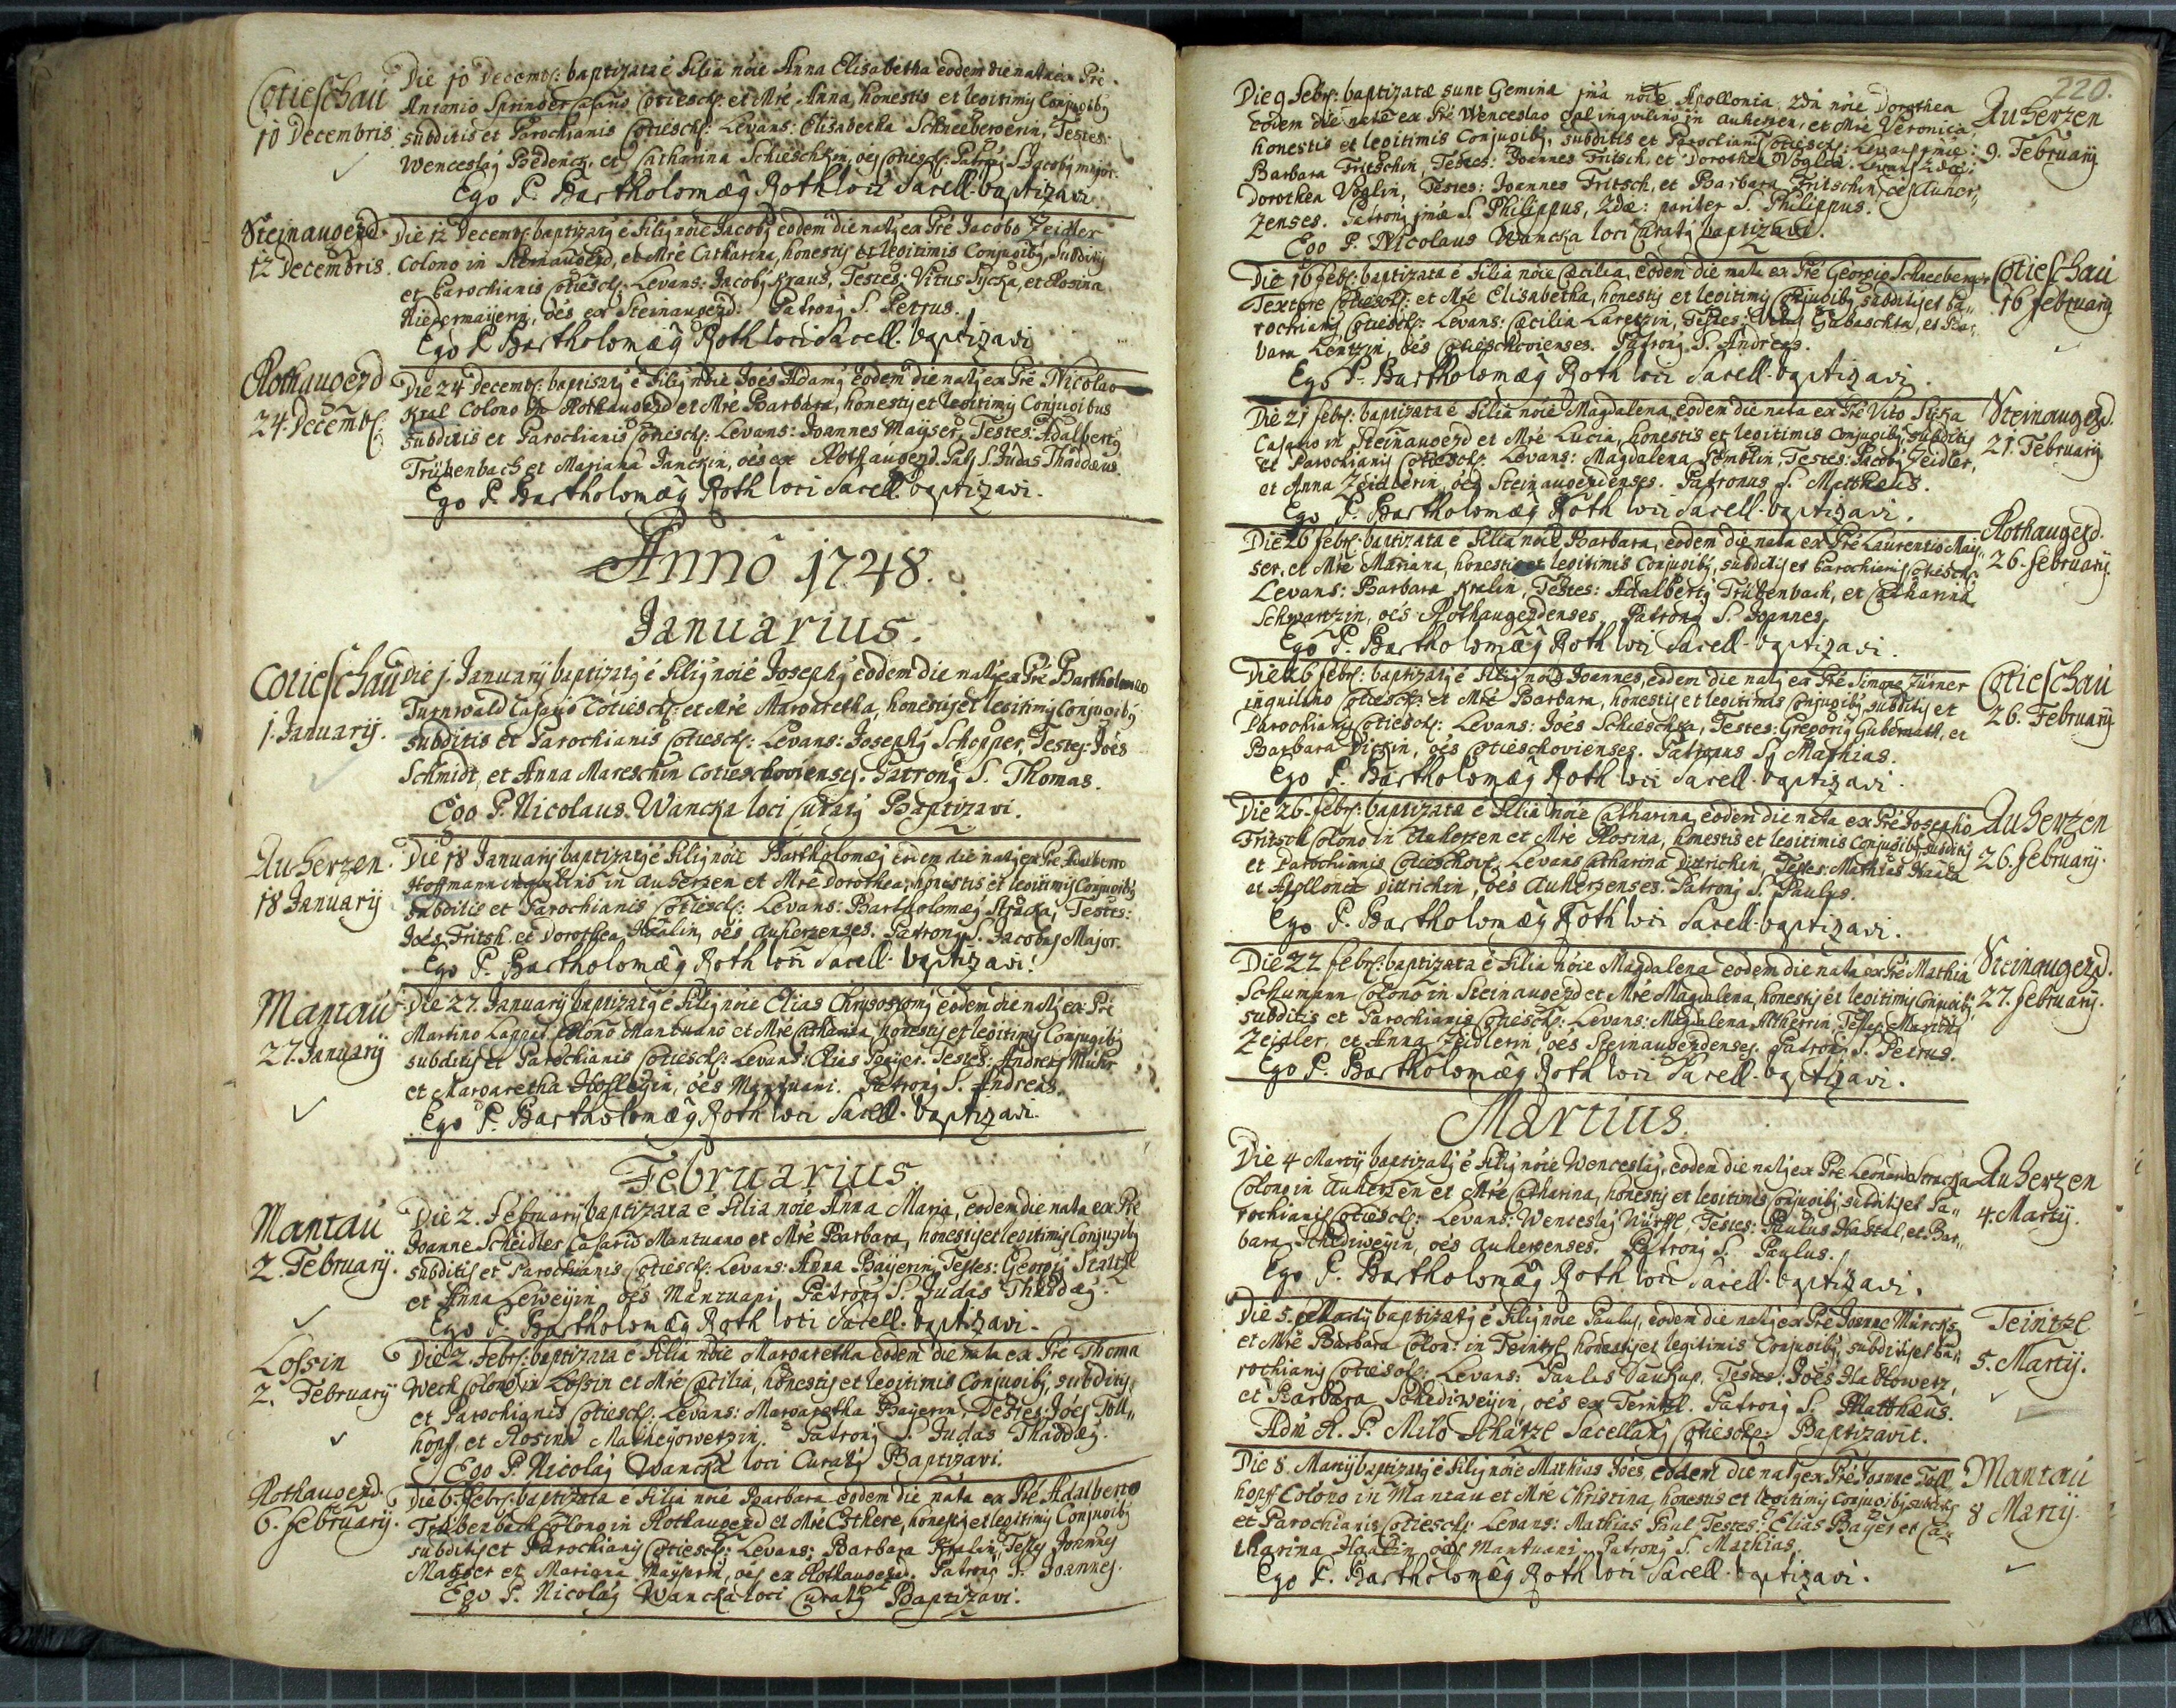 Cotieschau
10 Decembris
Die 10 Decembr: baptizata é Filia nóie Anna Elisabetha eodem die nata ex Pré
Antonio Springer Casario Cotiesch: et Mré Anna, honestis et legitimis Conjugibg
subditis et Parochianis Cotiesch: Levans: Elisabetha Schneebergerin, Testes:
Wenceslag et Catharina oés Cotiesch: Patrong S. Jacobg major.
Ego P. Bartholomæg Roth loci Sacell. baptizavi.
Steinaugezd
12 Decembris.
Die 12 Decembr: baptizatg é Filig nóie Jacobg eodem die natg ex Pré Jacobo Zeidler
Colono in Steinaugezd, et Mré Catharina, honestis et legitimis Conjugibg, subditis
et Parochianis Cotiesch: Levans: Jacobg Kraus, Testes: Vitus et Rosina
Niedermaijerin, oés ex Steinaugezd. Patrong S. Petrus.
Ego P. Bartholomæg Roth loci Sacell. baptizavi
Rothaugezd
24 Decembr:
Die 24 Decembr: baptisatg é Filig nóie Joés Adamg eodem die natg ex Pré Nicolao
Kral Colono in Rothaugezd et Mré Barbara, honestis et legitimis Conjugibus
subditis et Parochianis Cotiesch: Levans: Joannes Maijser, Testes: Adalbertg
Trübenbach et Mariana Janckin, oés ex Rothaugezd. Patg S. Judas Thaddæus.
Ego P. Bartholomæg Roth loci Sacell. baptizavi.
Annô 1748.
Januarius.
Cotieschau
1. Januarij.
Die 1. Januarij baptizatg é Filig nóie Josephg eodem die natg ex Pré Bartholomeo
Turnwald Casario Cotiesch: et Mré Margaretha, honestis et legitimis Conjugibg
subditis et Parochianis Cotiesch: Levans: Josephg Schopper, Testes: Joés
Schmidt, et Anna Mareschin Cotieschovienses. Patrong S. Thomas.
Ego P. Nicolaus Wancka loci Curatg Baptizavi.
Auherzen.
18 Januarij
Die 18 Januarij baptizatg é Filig nóie Bartholomæg eodem die natg ex Pré Adalberto
Hoffmann inquilino in Auherzen et Mré Dorothea, honestis et legitimis Conjugibg
subditis et Parochianis Cotiesch: Levans: Bartholomæg Straka, Testes:
Joés Fritsch et Dorothea Haalin, oés Auherzenses. Patrong S. Jacobus Major.
Ego P. Bartholomæg Roth loci Sacell. baptizavi.
Mantau
27. Januarij
Die 27. Januarij baptizatg é Filig nóie Elias Chrysostomg eodem die natg ex Pré
Martino Colono Mantuano et Mré Catharina honestis et legitimis Conjugibg
subditis et Parochianis Cotiesch: Levans: Elias Testes: Andreas
et Margaretha oés Mantuani. Patrong S. Andreas.
Ego P. Bartholomæg Roth loci Sacell. baptizavi.
Februarius.
Mantau
2. Februarij.
Die 2. Februarij baptizata é Filia nóie Anna Maria, eodem die nata ex Pré
Joanne Scheidler Casario Mantuano et Mré Barbara, honestis et legitimis Conjugibg
subditis et Parochianis Cotiesch: Levans: Anna Baijerin, Testes: Georgg
et Anna oés Mantuani. Patrong S. Judas Thaddæg.
Ego P. Bartholomæg Roth loci Sacell. baptizavi.
Lossin
2. Februarij
Die 2. Febr: baptizata é Filia nóie Margaretha eodem die nata ex Pré Thoma
Weck Colono in Lossin et Mré Cæcilia, honestis et legitimis Conjugibg, subditis
et Parochianis Cotiesch: Levans: Margaretha Baijerin, Testes: Joés Toll„
hopff, et Rosina Patrong S. Judas Thaddæg.
Ego P. Nicolag Wancka loci Curatg Baptizavi.
Rothaugezd.
6. Februarij.
Die 6. Febr: baptizata é Filia nóie Barbara eodem die nata ex Pré Adalberto
Trübenbach Colono in Rothaugezd et Mré Esthere, honestis et legitimis Conjugibg
subditis et Parochianis Cotiesch: Levans: Barbara Kralin, Testes Joannes
Maijser et Mariana Maijserin, oés ex Rothaugezd. Patrong S. Joannes.
Ego P. Nicolag Wancka loci Curatg Baptizavi.
220.
Die 9 Febr: baptizatæ sunt Gemina 1má nóie Apollonia, 2dá nóie Dorothea
eodem die natæ ex Pré Wenceslao inquilino in Auherzen, et Mré Veronica,
honestis et legitimis Conjugibg, subditis et Parochianis Cotiesch: Levans 1mæ:
Barbara Fritschin, Testes: Joannes Fritsch, et Dorothea Voglin. Levans 2dæ:
Dorothea Voglin, Testes: Joannes Fritsch, et Barbara Fritschin, oés Auher„
zenses. Patrong 1mæ S. Philippus, 2dæ: pariter S. Philippus.
Ego P. Nicolaus Wancka loci Curatg baptizavi.
Auherzen
9. Februarij
Die 16 Febr: baptizata é Filia nóie Cæcilia, eodem die nata ex Pré Georgio Schneeberger
Textore Cotiesch: et Mré Elisabetha, honestis et legitimis Conjugibg subditis et Pa„
rochianis Cotiesch: Levans: Cæcilia Testes: et Bar„
bara oés Cotieschovienses. Patrong S. Andreas.
Ego P. Bartholomæg Roth loci Sacell. baptizavi.
Cotieschau
16 Februarij
Die 21 Febr: baptizata é Filia nóie Magdalena, eodem die nata ex Pré Vito
Casario in Steinaugezd et Mré Lucia, honestis et legitimis Conjugibg subditis
et Parochianis Cotiesch: Levans: Magdalena Testes: Jacobg Zeidler,
et Anna Zeidlerin, oés Steinaugezdenses. Patronus S. Matthæus.
Ego P. Bartholomæg Roth loci Sacell. baptizavi.
Steinaugezd.
21. Februarij
Die 26 Febr: baptizata é Filia nóie Barbara, eodem die nata ex Pré Laurentio Maij„
ser, et Mré Mariana, honestis et legitimis Conjugibg, subditis et Parochianis Cotiesch:
Levans: Barbara Kralin, Testes: Adalbertg Trübenbach, et Catharina
Schwartzin, oés Rothaugezdenses. Patrong S. Joannes.
Ego P. Bartholomæg Roth loci Sacell. baptizavi.
Rothaugezd.
26. Februarij
Die 26 Febr: baptizatg é Filig nóie Joannes, eodem die natg ex Pré Simone Zürner
inquilino Cotiesch: et Mré Barbara, honestis et legitimis Conjugibg subditis et
Parochianis Cotiesch: Levans: Joés Schieschka, Testes: Gregorig et
Barbara oés Cotieschovienses. Patronus S. Mathias.
Ego P. Bartholomæg Roth loci Sacell. baptizavi.
Cotieschau
26. Februarij
Die 26. Febr: baptizata é Filia nóie Catharina eodem die nata ex Pré Josepho
Fritsch Colono in Auherzen et Mré Rosina, honestis et legitimis Conjugibg subditis
et Parochianis Cotieschov: Levans Catharina Dittrichin, Testes: Mathias
et Apollonia Dittrichin, oés Auherzenses. Patrong S. Paulus.
Ego P. Bartholomæg Roth loci Sacell. baptizavi.
Auherzen
26. Februarij.
Die 27 Febr: baptizata é Filia nóie Magdalena eodem die nata ex Pré Mathia
Schumann Colono in Steinaugezd et Mré Magdalena, honestis et legitimis Conjugibg,
subditis et Parochianis Cotiesch: Levans: Magdalena Altherrin, Testes
Zeidler, et Anna Zeidlerin, oés Steinaugezdenses. Patrong S. Petrus.
Ego P. Bartholomæg Roth loci Sacell. baptizavi.
Steinaugezd.
27. Februarij.
Martius.
Die 4 Martij baptizatg é Filig nóie Wenceslag, eodem die natg ex Pré Leonardo Stracka
Colono in Auherzen et Mré Catharina, honestis et legitimis Conjugibg subditis et Pa„
rochianis Cotiesch: Levans: Wenceslag Testes: Paulus Hastal, et Bar„
bara Schediweijin, oés Auherzenses. Patrong S. Paulus.
Ego P. Bartholomæg Roth loci Sacell. baptizavi.
Auherzen
4. Martij.
Die 5. Martij baptizatg é Filig nóie Paulus, eodem die natg ex Pré Joanne
et Mré Barbara Colon: in Teintzl, honestis et legitimis Conjugibg, subditis et Pa„
rochianis Cotiesch: Levans: Paulus Testes: Joés
et Barbara Schediweijin, oés ex Teintzl. Patrong S. Matthæus.
Adm̃ R. P. Milo Schätzl Sacellang Cotiesch: Baptizavit.
Teintzl
5. Martij.
Die 8. Martij baptizatg é Filig nóie Mathias Joés, eodem die natg ex Pré Joanne Toll„
hopff Colono in Mantau et Mré Christina, honestis et legitimis Conjugibg subditis
et Parochianis Cotiesch: Levans: Mathias Paul, Testes: Elias Baijer et Ca„
tharina oés Mantuani. Patrong S. Mathias.
Ego P. Bartholomæg Roth loci Sacell. baptizavi.
Mantau
8 Martij.